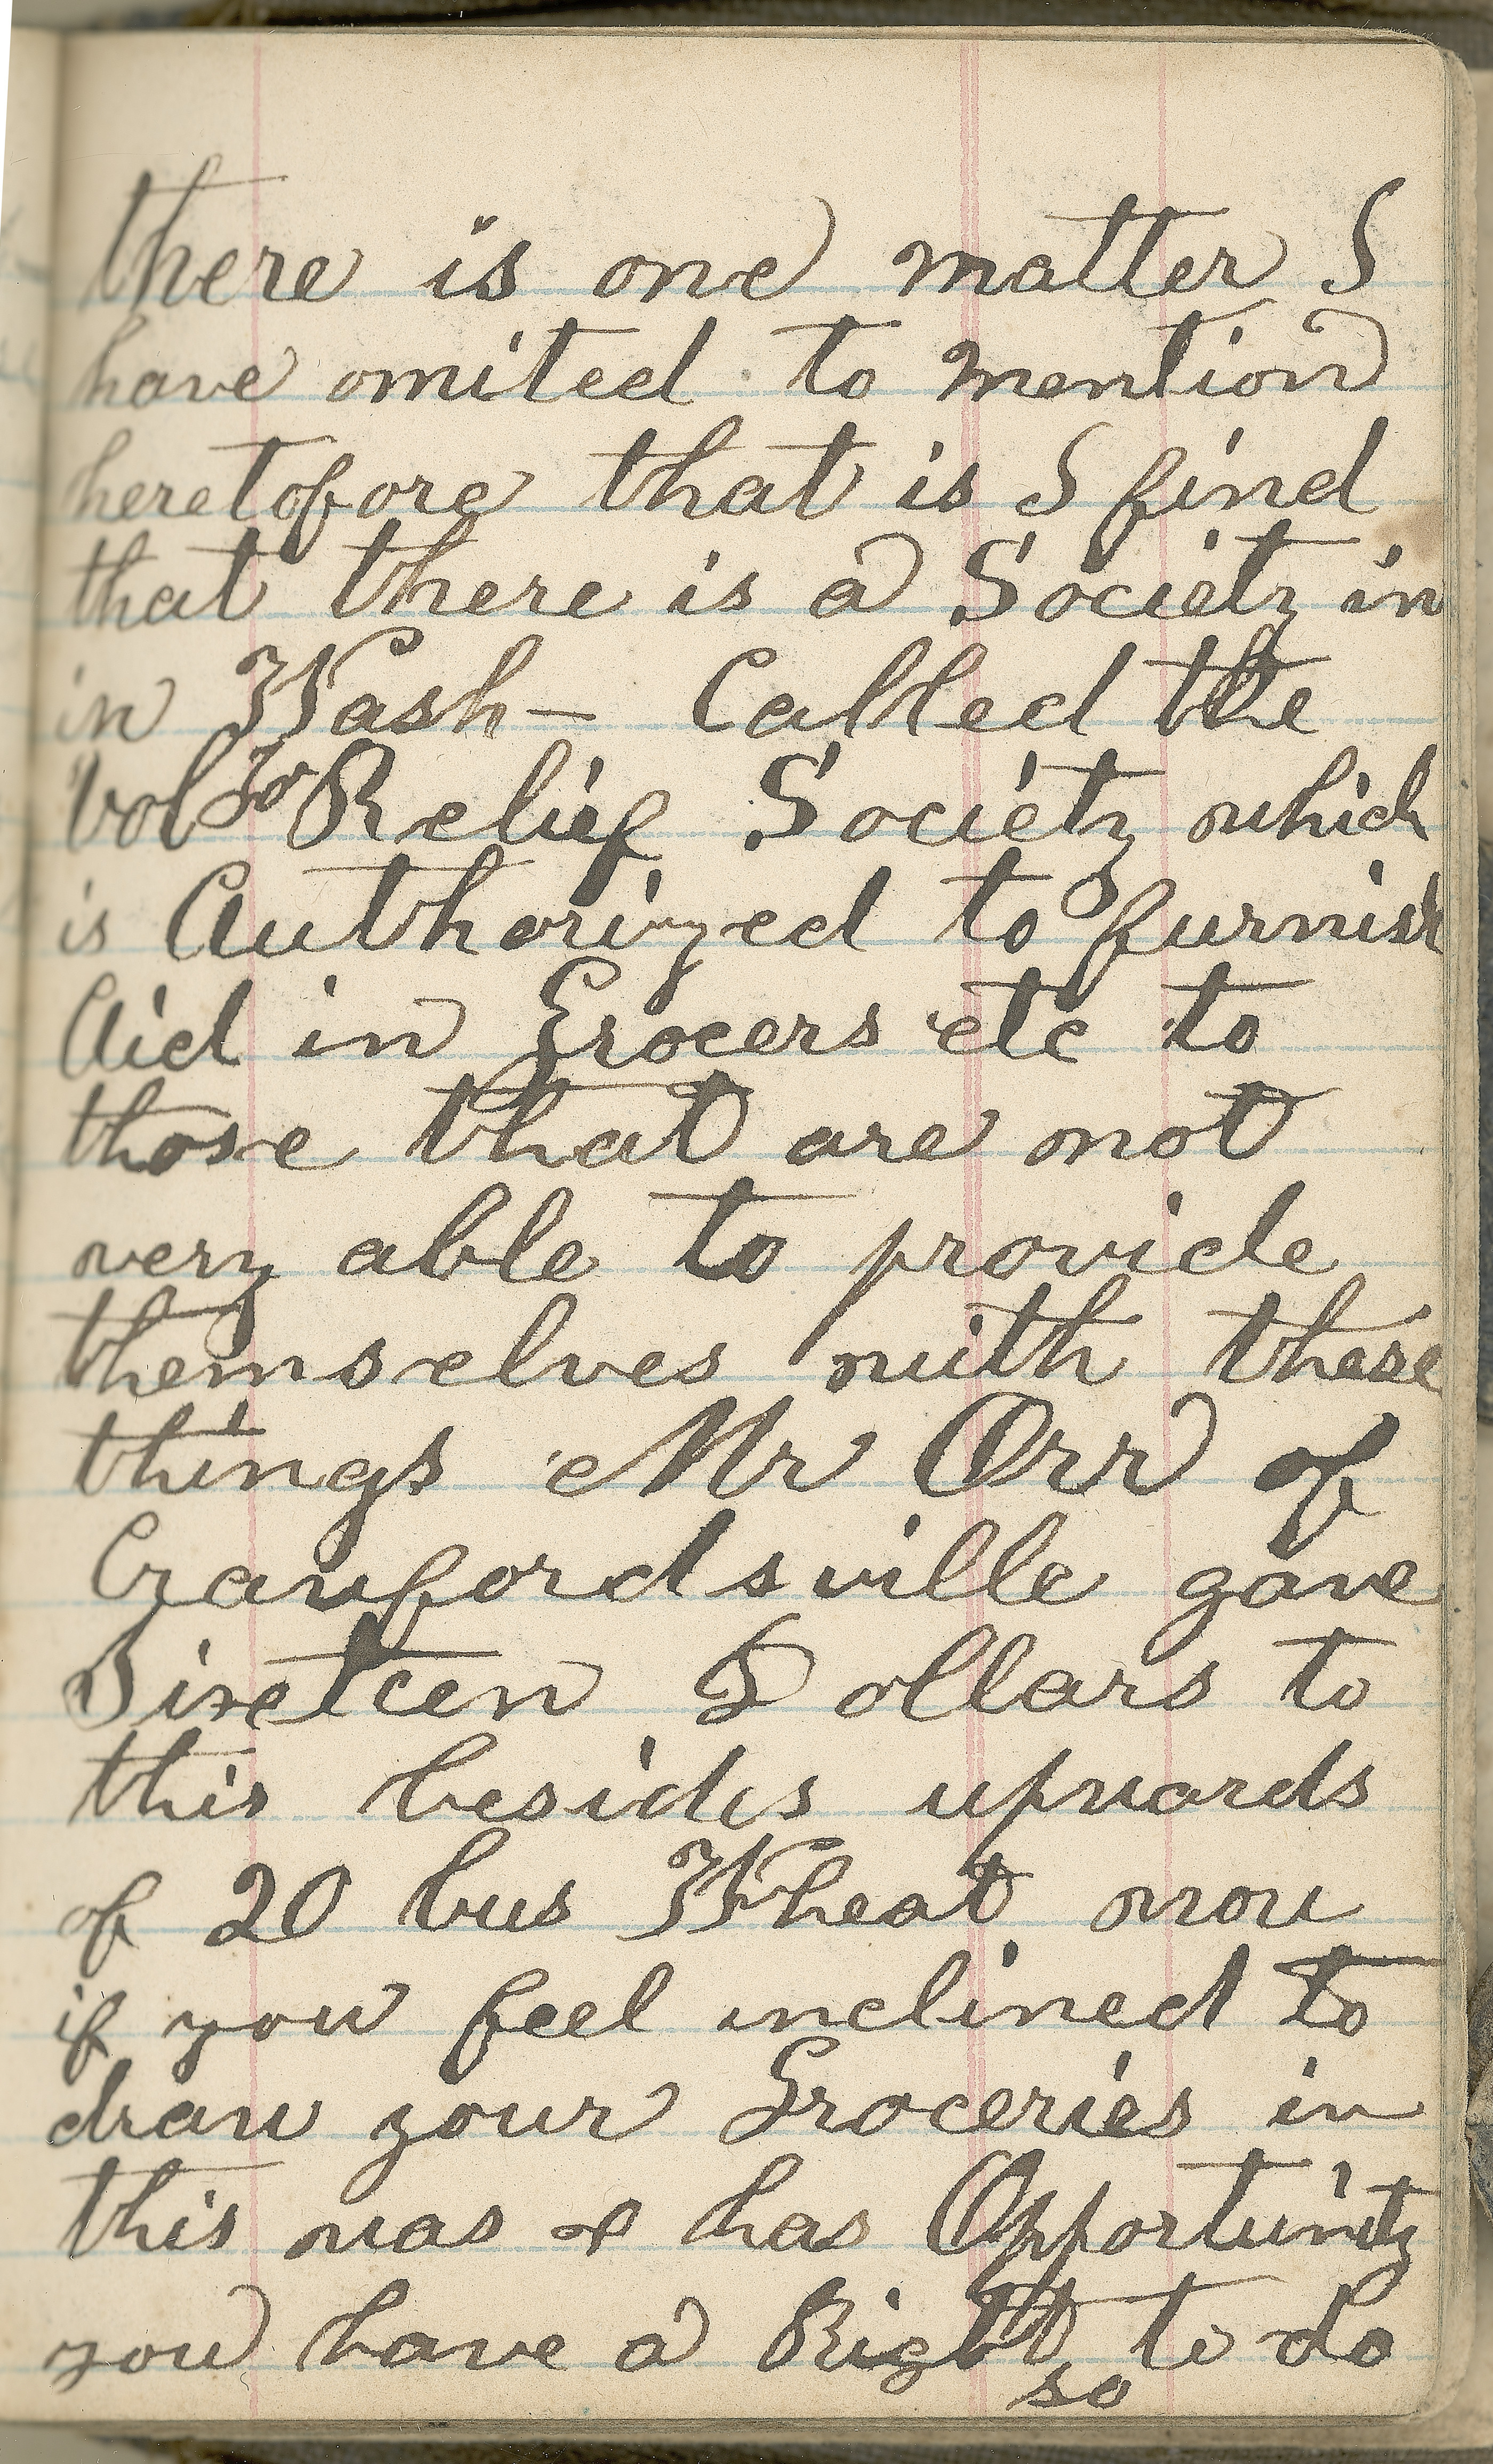 there is one matter I
have omited to mention
heretofore that is I find
that there is a Society in
in Wash— Called the
Vol Relief Society which
is Authorized to furnish
Aid in Grocers etc to
those that are not
very able to provide
themselves with these
things Mr Orr of
Crawfordsville gave
Sixteen Dollars to
this besides upwards
of 20 bus Wheat now
if you feel inclined to
draw your Groceries in
this was & has Opportunity
you have a Right to do
so